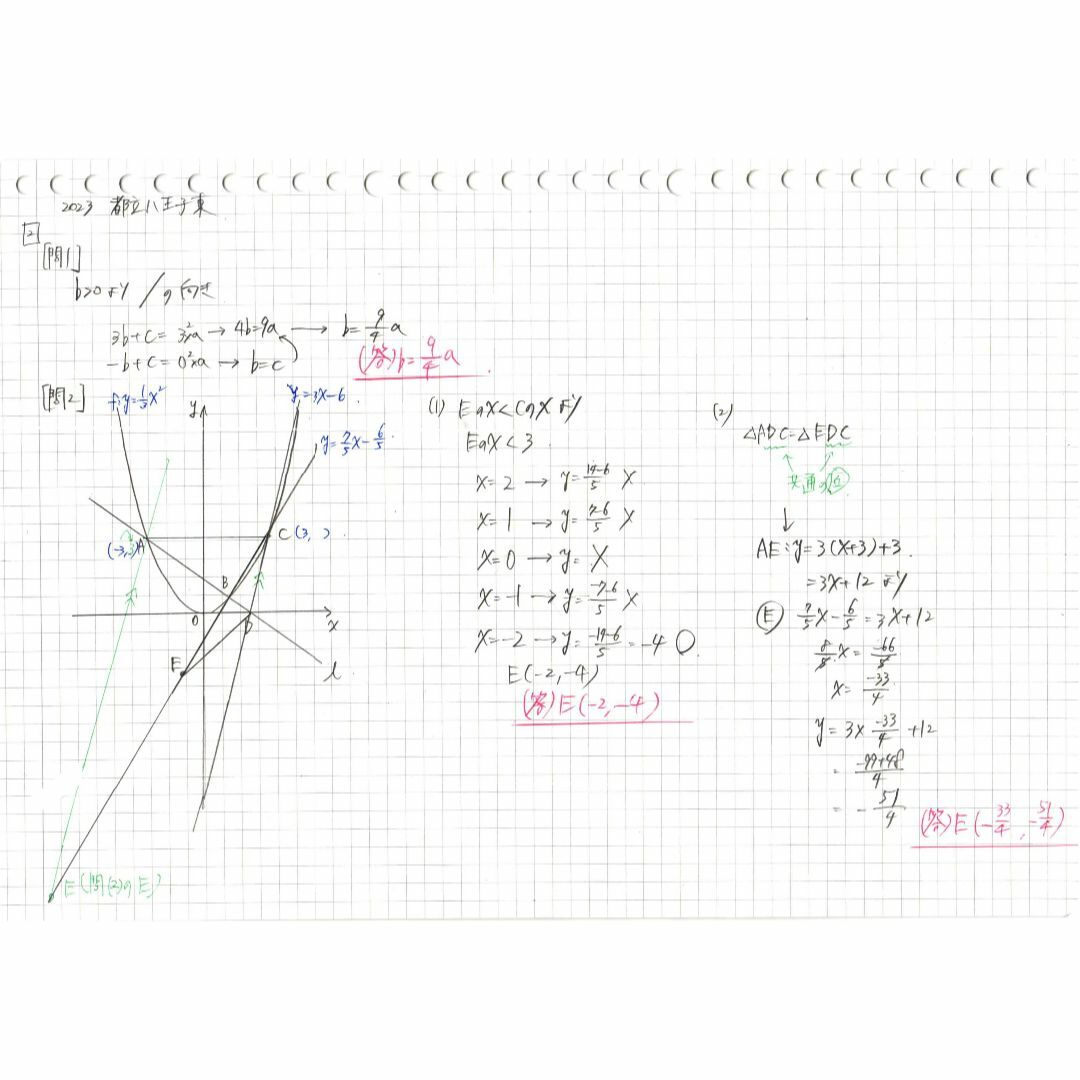 2023 都立八王子東
2
[問1]
b>0より /の向き
3b+c=3²×a→4b=9a → b=9/4a
-b+c=0²×a→b=c
(答)b=9/4a
[問2]
f:y=1/3x²
y
y=3x-6
y=7/5x-6/5
C(3, )
A
B
O
D
x
E
l
E(問(2)のE)
(1) Eのx<Cのxより
Eのx<3
x=2→y=14-6/5 X
x=1→y=7-6/5 X
x=0→y= X
x=-1→y=-7-6/5 X
x=-2→y=-14-6/5=-4 ○
E(-2,-4)
(答)E(-2,-4)
(2)
△ADC=△EDC
共通の
↓
AE:y=3(x+3)+3
=3x+12 より
E 7/5x-6/5=3x+12
8/5x=-66/5
x=-33/4
y=3×-33/4+12
=-99+48/4
=-51/4
(答)E(-33/4,-51/4)